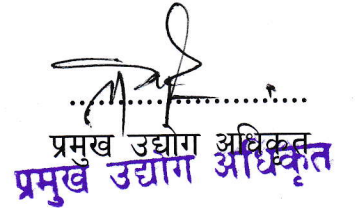 प्रमुख उद्योग अधिकृत
प्रमुख उद्योग अधिकृत